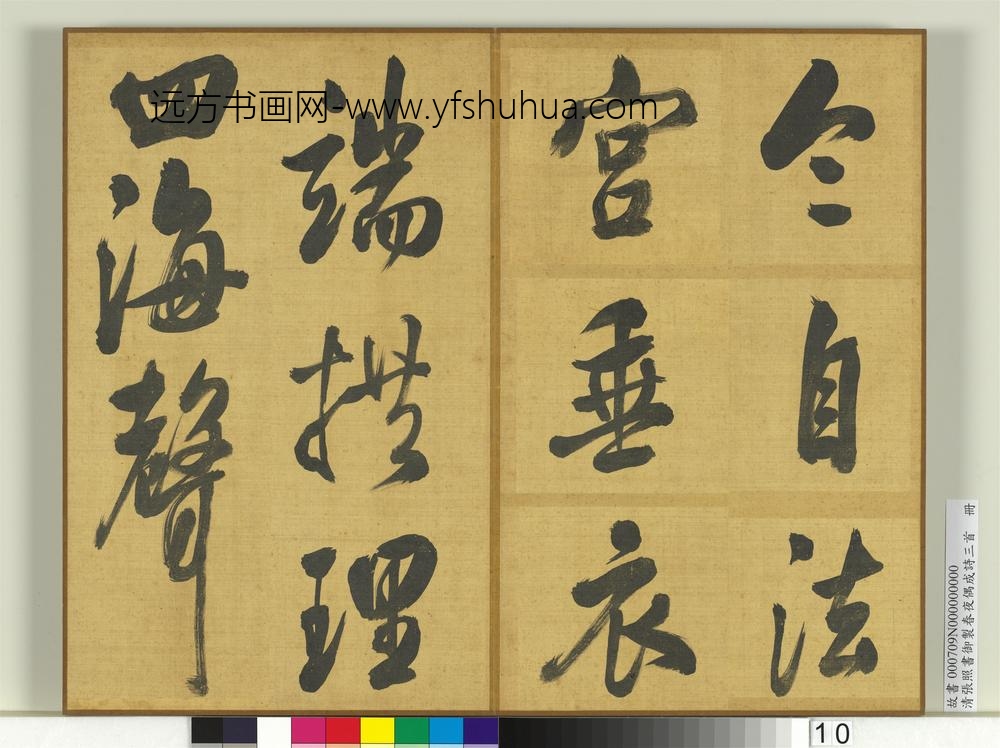 自法
宮垂衣
端拱理
四海聲
远方书画网-www.yfshuhua.com
故書 000709N000000000
清張照書御製春夜偶成詩三首 冊
10